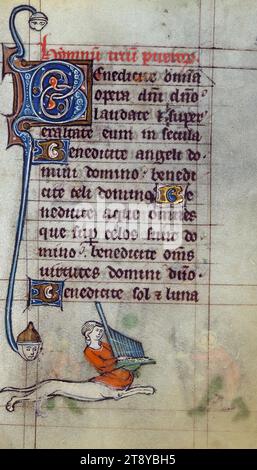 Hymnum trium puerorum
Benedicite omnia
opera dni dno
laudate et super
exaltate eum in secula
Benedicite angeli do-
mini domino. benedi
cite celi domino. Be
nedicite aque omnes
que sup celos sunt do
mino. benedicite oms
virtutes domini dno.
Benedicite sol et luna
alamy
Image ID: 2T8YBH5
www.alamy.com